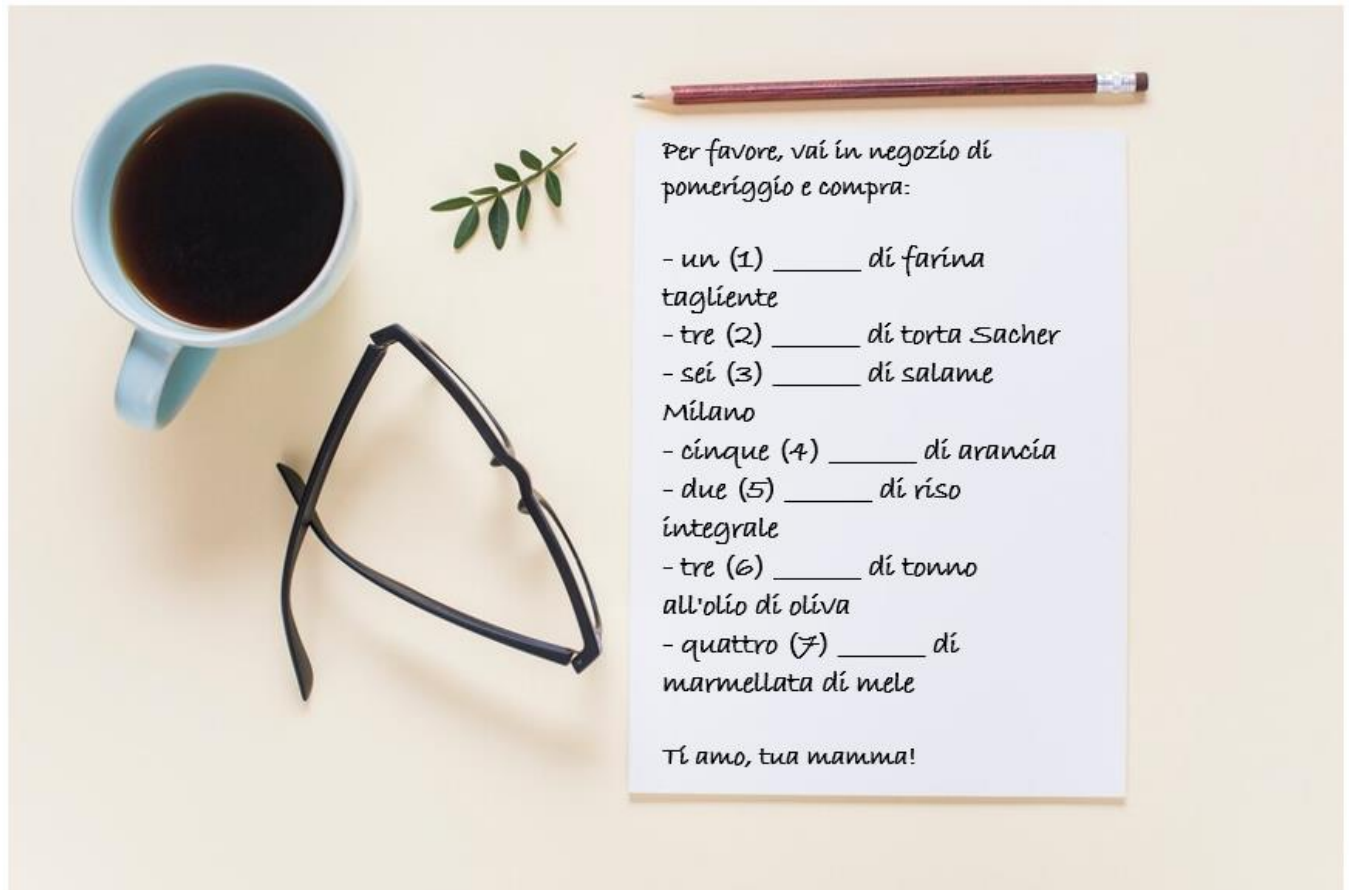 Per favore, vai in negozio di
pomeriggio e compra:
- un (1) _______ di farina
tagliente
- tre (2) _______ di torta Sacher
- sei (3) _______ di salame
Milano
- cinque (4) _______ di arancia
- due (5) _______ di riso
integrale
- tre (6) _______ di tonno
all'olio di oliva
- quattro (7) _______ di
marmellata di mele
Ti amo, tua mamma!